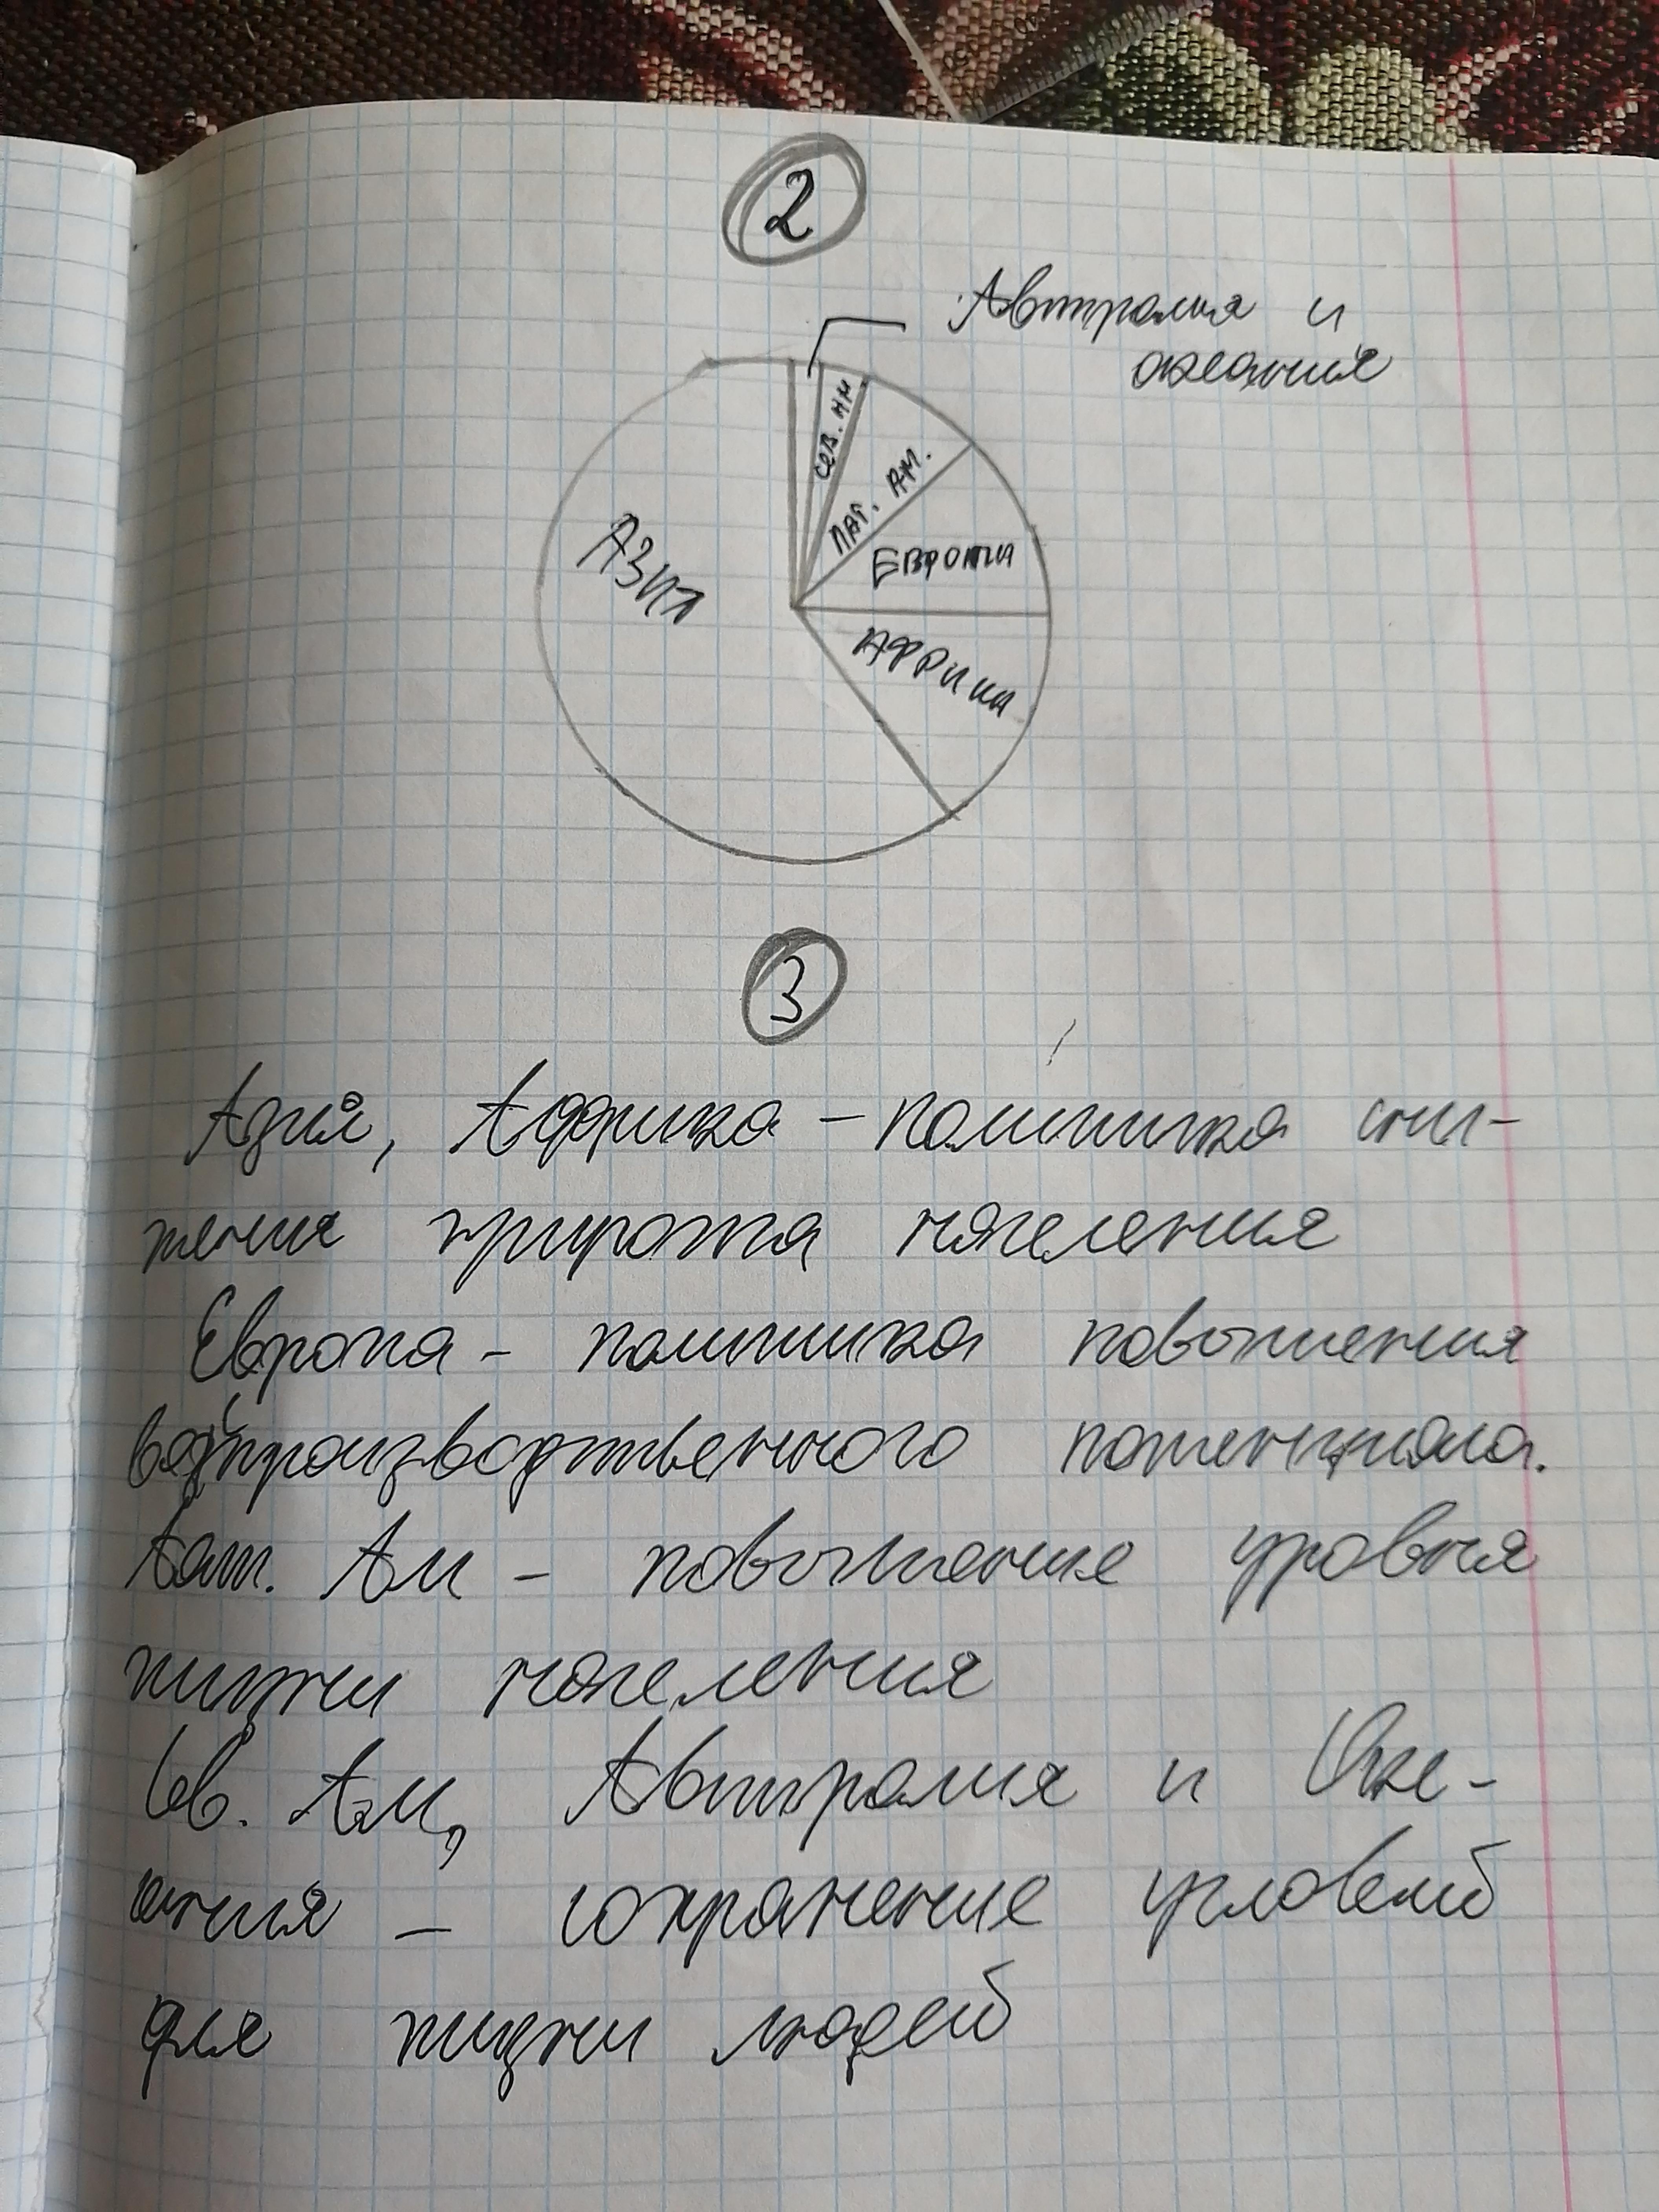 2
Австралия и
океания
СЕВ. АМ
ЛАТ. АМ.
ЕВРОПА
АФРИКА
АЗИЯ
3
Азия, Африка – политика сни-
жения прироста населения
Европа – политика повышения
воспроизводственного потенциала.
Лат. Ам – повышение уровня
жизни населения
Св. Ам, Австралия и Оке-
ания – сохранение условий
для жизни людей